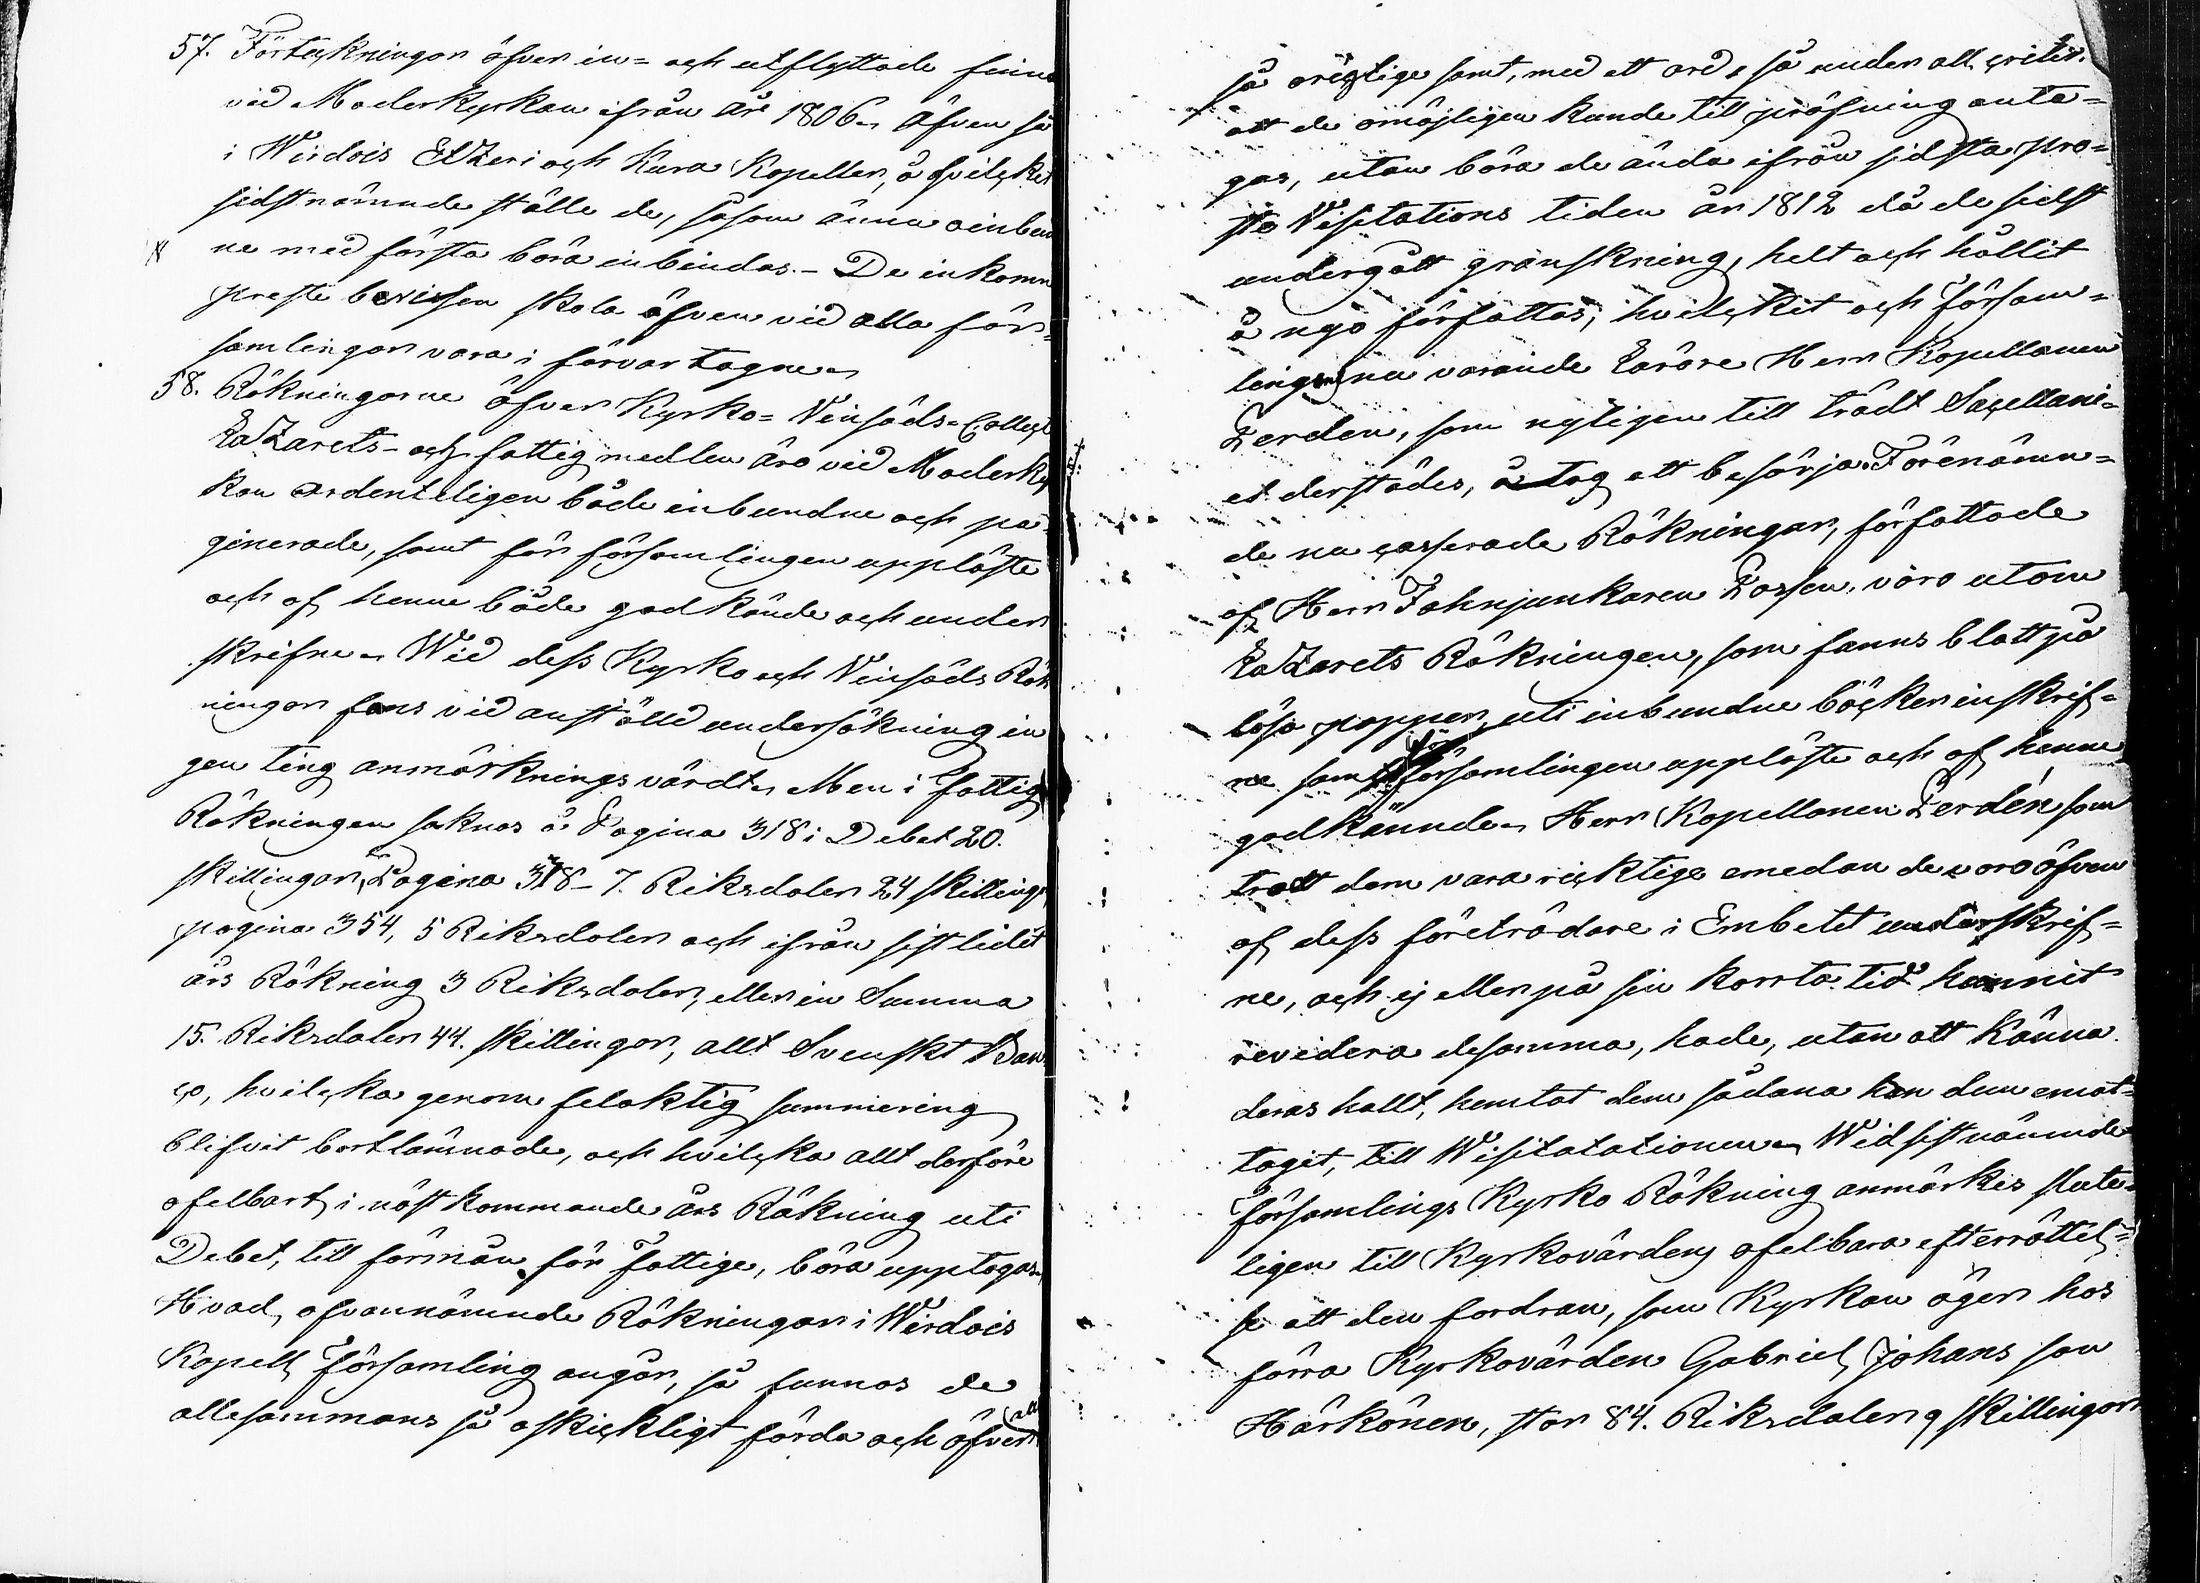 57. Förteckningar öfver in= och utflyttade finna
vid Moderkyrkan ifrån år 1806. äfven så
i Wirdois Etzeri och Kura Kapeller, å hvilcket
sidstnämnde ställe de, såsom ännu oinbun
ne med första böra inbindas. – De inkomn
preste bevissen skola äfven vid alla för=
samlingar vara i förvar tagne.
58. Räkningarne öfver Kyrko= Vinsäds= Collect
Lazarets- och fattig medlen äro vid Moderky
kan ordenteligen både inbundne och pa
ginerade, samt för församlingen uppläste
och af henne både godkände och under
skrifne. Wid dess Kyrko och Vinsäds Räk
ningar fans vid anstäld undersökning in
gen ting anmärkningsvärdt. Men i Fattig
Räkningen saknas å Pagina 318 i Debet 20.
skillingar, Pagina 318 – 7. Riksdaler 24 skilling
pagina 354, 5 Riksdaler och ifrån sistlidit
års Räkning 3 Riksdaler, eller in Summa
15. Riksdaler 44. skillingar, allt Svenskt Ban
co, hvilcka genom felaktig summering
blifvit bortlämnade, och hvilcka allt derföre
ofelbart, i näst kommande års Räkning uti
Debet, till förmån för Fattige, böra upptagas.
Hvad ofvannämnde Räkningar i Wirdois
Kapell Församling angår, så funnos de
allesammans så oskickligt förda och öfver all
så oricktige samt, med ett ord, så under all critic.
att de omöjligen kunde till pröfning anta=
gas, utan böra de ända ifrån sidsta pro=
ste Visitations tiden år 1812 då de sidst
undergått granskning, helt och hållit
å nyo författas, hvilcket och Försam=
lingens nu varande Lärare Herr Kapellanen
Perdén, som nyligen till trädt Sacellani=
et derstädes, åtog att besörja. Förenämn=
de nu casserade Räkningar, författade
af Herr Fahnjunkaren Lassen, voro utom
Lazarets Räkningen, som fanns blott på
lösa papper, uti inbundne böcker inskrif=
ne samt för församlingen uppläste och af henne
godkännde. Herr Kapellanen Perdén som
trott dem vara ricktige emedan de voro äfven
af dess företrädare i Embetet underskrif=
ne, och ej eller på sin korrta tid hunnit
revidera desamma, hade, utan att känna
deras hallt, hemtat dem sådana han dem emot=
tagit, till Wisitatationen. Wid sistnämnde
Församlings Kyrko Räkning anmärkes slute=
ligen till Kyrkovärdens ofelbara efterrättel=
se att den fordran, som Kyrkan äger hos
förra Kyrkovärden Gabriel Johans son
Härkönen, stor 84. Riksdaler 9 skillingar